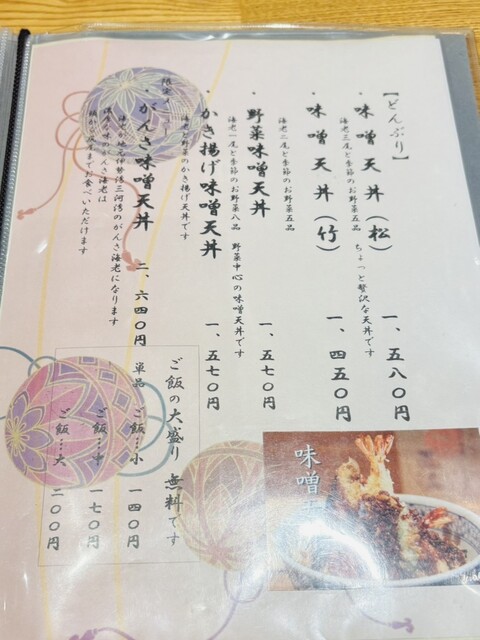 【どんぶり】
・味噌天丼（松）　一、五八〇円
海老三尾と季節のお野菜五品　ちょっと贅沢な天丼です
・味噌天丼（竹）　一、四五〇円
海老二尾と季節のお野菜五品
・野菜味噌天丼　一、五七〇円
海老一尾と季節のお野菜八品　野菜中心の味噌天丼です
・かき揚げ味噌天丼　一、五七〇円
海老と野菜のかき揚げ天丼です
限定メニュー
・がんさ味噌天丼　二、六四〇円
海老が地元伊勢湾三河湾のがんさ海老になります
濃厚な味のがんさ海老は
頭からまでお食べいただけます
ご飯の大盛り　無料です
単品　ご飯…小　一四〇円
ご飯…中　一七〇円
ご飯…大　二〇〇円
味噌